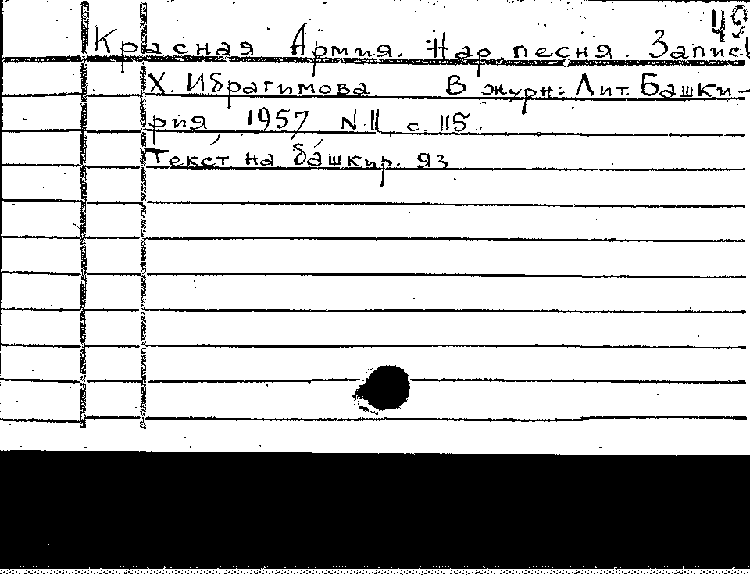 49
Красная Армия. Нар. песня. Запись
Х. Ибрагимова В журн: Лит. Башки-
рия, 1957 N. 11 с. 115.
Текст на башкир. яз